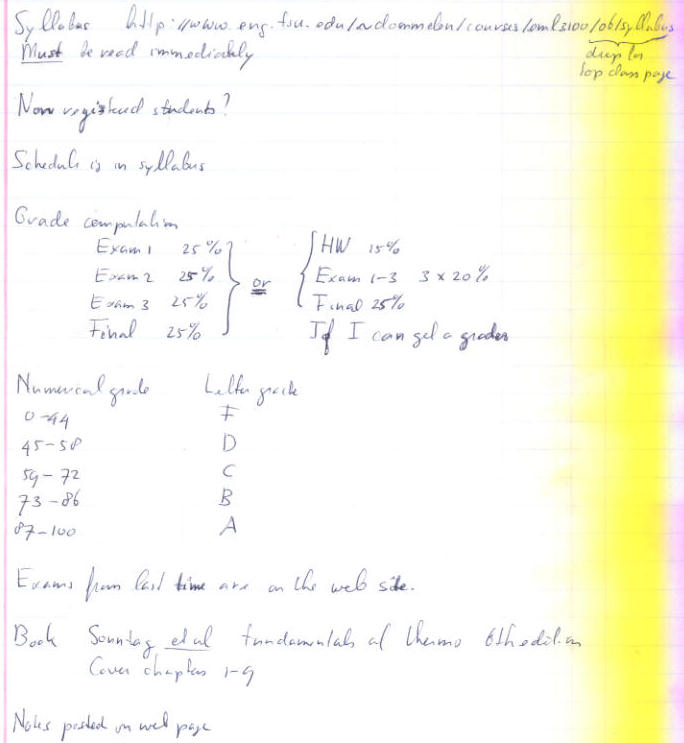 Syllabus http://www.eng.fsu.edu/~dommelen/courses/eml3100/06/syllabus
Must be read immediately
drop for
top class page
Non registered students?
Schedule is in syllabus
Grade computation
Exam 1 25%
Exam 2 25%
Exam 3 25%
Final 25%
or
HW 15%
Exam 1-3 3 x 20%
Final 25%
If I can get a grader
Numerical grade Letter grade
0-44 F
45-58 D
59-72 C
73-86 B
87-100 A
Exams from last time are on the web site.
Book Sonntag et al Fundamentals of Thermo 6th edition
Cover chapters 1-9
Notes posted on web page